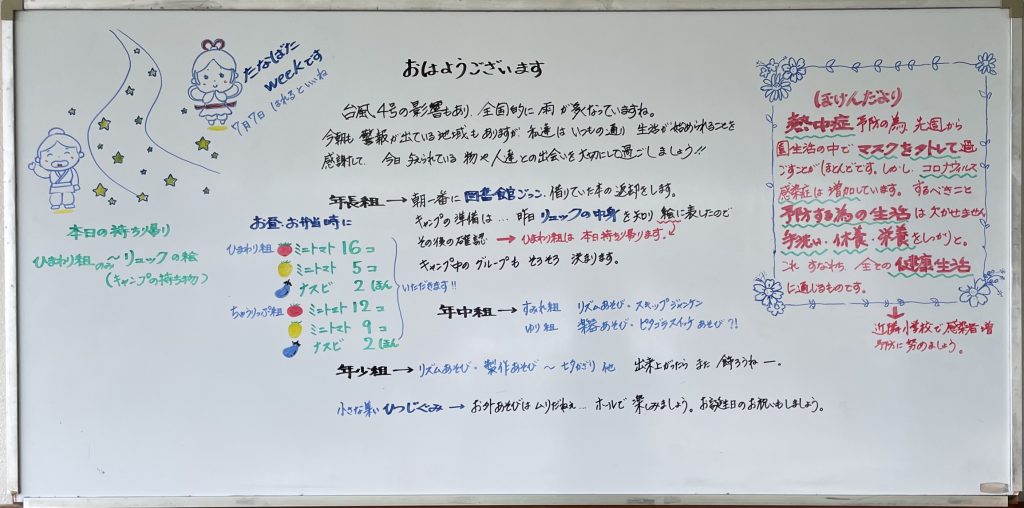 たなばた
weekです
7月7日 はれるといいね
おはようございます
台風4号の影響もあり、全国的に雨が多くなっていますね。
今朝も警報が出ている地域もありますが、私達はいつもの通り生活が始められることを
感謝して、今日与えられている物や人達との出会いを大切にして過ごしましょう!!
本日の持ち帰り
ひまわり組のみ〜リュックの絵
(キャンプの持ち物)
お昼、お弁当時に
ひまわり組 ミニトマト 16コ
ミニトマト 5コ
ナスビ 2ほん
ちゅうりっぷ組 ミニトマト 12コ
ミニトマト 9コ
ナスビ 2ほん
いただきます!!
年長組→朝一番に図書館ごっこ、借りていた本の返却をします。
キャンプの準備は…昨日リュックの中身を知り絵に表したので
その後の確認→ひまわり組は本日持ち帰ります。
キャンプ中のグループもそろそろ決まります。
年中組→すみれ組 リズムあそび・スキップジャンケン
ゆり組 楽器あそび・ピタゴラスイッチあそび?!
年少組→リズムあそび・製作あそび〜七夕かざり他 出来上がったらまた飾ろうねー。
小さな集い ひつじぐみ→お外あそびはムリだねぇ…ホールで楽しみましょう。お誕生日のお祝いもしましょう。
ほけんだより
熱中症予防の為、先週から
園生活の中でマスクを外して過
ごすことがほとんどです。しかし、コロナウイルス
感染症は増加しています。するべきこと
予防する為の生活は欠かせません
手洗い・休養・栄養をしっかりと。
これすなわち、全ての健康生活
に通じるものです。
近隣小学校で感染者増
予防に努めましょう。